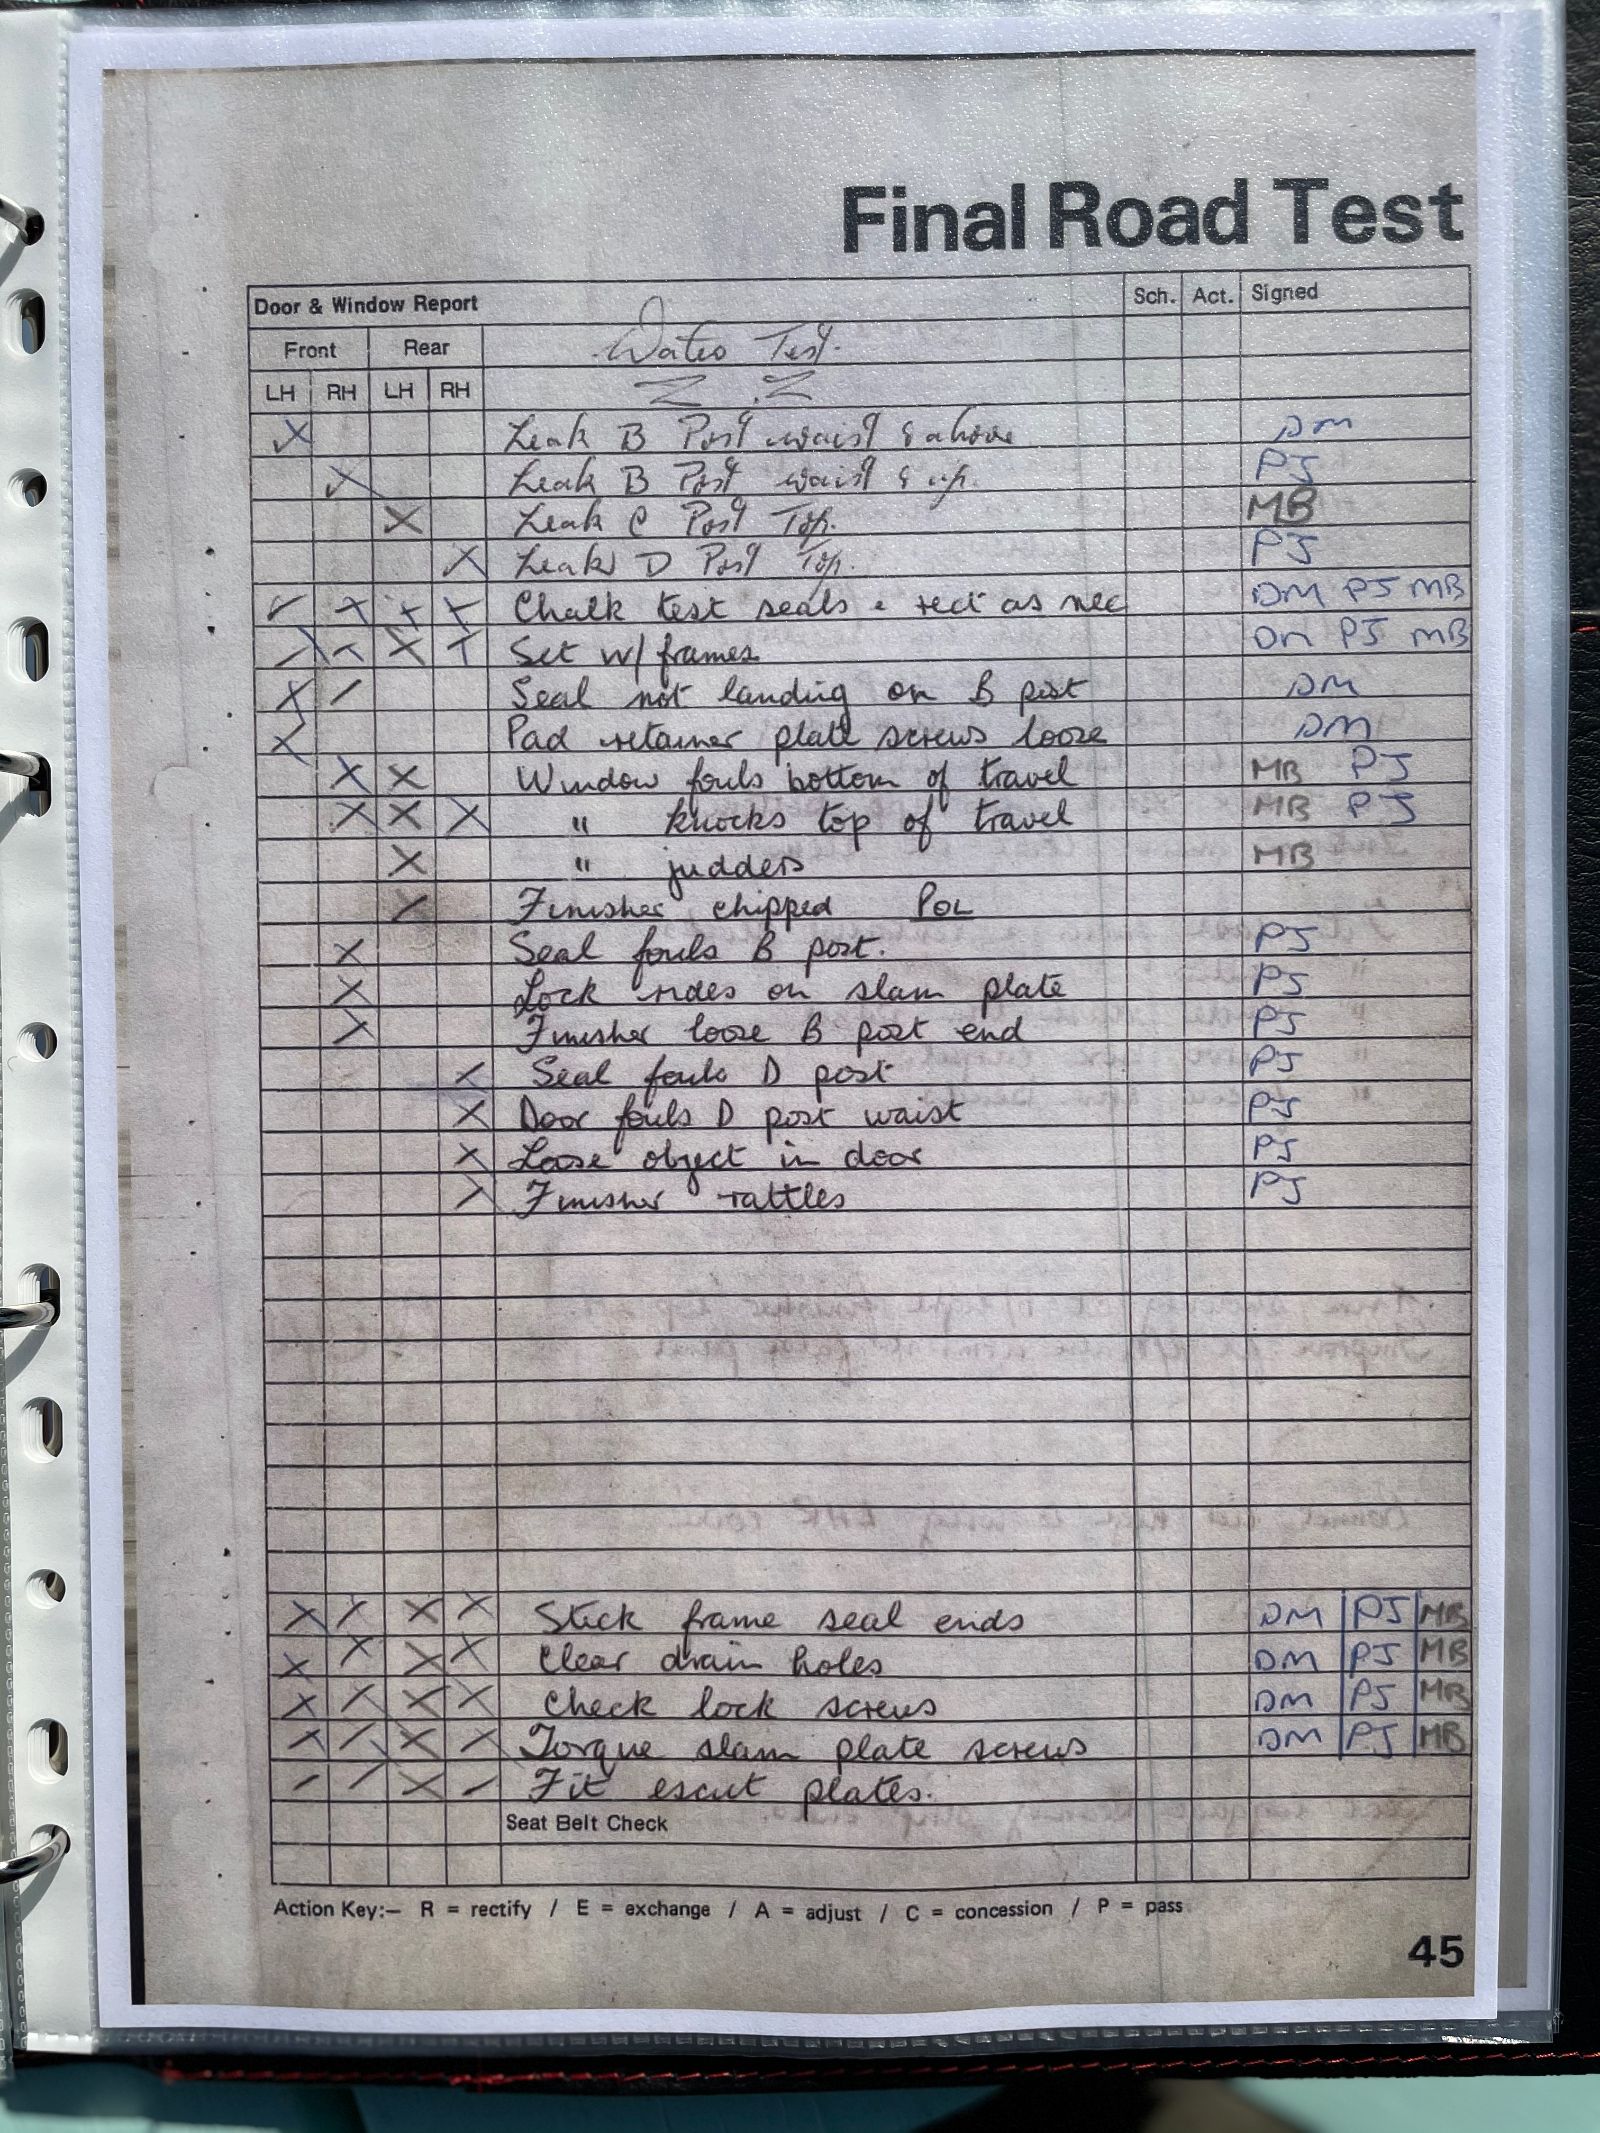 Final Road Test
Door & Window Report Sch. Act. Signed
Front Rear Water Test.
LH RH LH RH
X Leak B Post waist & above DM
X Leak B Post waist & up. PJ
X Leak C Post Top. MB
X Leak D Post Top. PJ
/ X X X Chalk test seals & rect as nec DM PJ MB
X X X X Set w/frames DM PJ MB
X / Seal not landing on B post DM
X Pad retainer plate screws loose DM
X X Window fouls bottom of travel MB PJ
X X X " knocks top of travel MB PJ
X " judders MB
/ Finisher chipped POL
X Seal fouls B post. PJ
X Lock rides on slam plate PJ
X Finisher loose B post end PJ
X Seal fouls D post PJ
X Door fouls D post waist PJ
X Loose object in door PJ
X Finisher rattles PJ
X X X X Stick frame seal ends DM PJ MB
X X X X Clear drain holes DM PJ MB
X X X X Check lock screws DM PJ MB
X X X X Torque slam plate screws DM PJ MB
/ / X / Fit escut plates.
Seat Belt Check
Action Key:— R = rectify / E = exchange / A = adjust / C = concession / P = pass
45